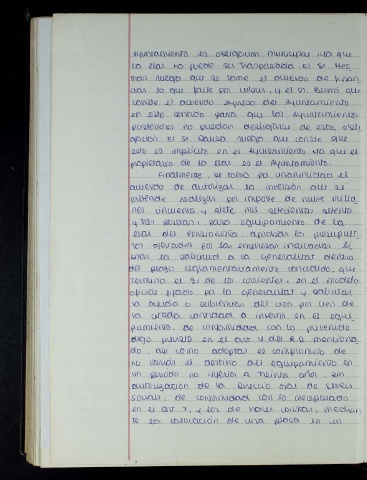 Ayuntamiento es obligación municipal ya que
la Llar no puede ser traspasada. El Sr. Mes
tres ruega que se tome el acuerdo de finan
ciar lo que falte por cubrir, y el Sr. que
conste el acuerdo expreso del Ayuntamiento
en este sentido para que los Ayuntamientos
posteriores no puedan desligarse de esta obli
gación. El Sr. ruega que conste que
esto es implícito en el Ayuntamiento ya que el
propietario de la Llar es el Ayuntamiento.
Finalmente, se tomó por unanimidad el
acuerdo de autorizar la inversión que se
pretende realizar por importe de nueve millo
nes cincuenta y siete mil setecientas setenta
y tres pesetas, para equipamiento de la
Llar del Pensionista, aprobar los presupues
tos ofertados por las empresas indicadas, ele
var la solicitud a la Generalitat dentro
del plazo reglamentariamente concedido, que
termina el 31 de los corrientes, en el modelo
oficial fijado por la Generalitat y solicitar
la ayuda o subvención del cien por cien de
la citada cantidad a invertir en el equi
pamiento, de conformidad con lo prevenido
digo previsto en el art. 4 del R.D. menciona
do, así como adoptar el compromiso de
no variar el destino del equipamiento en
un período no inferior a treinta años, sin
autorización de la Dirección Gral. de Servicios
Sociales, de conformidad con lo preceptuado
en el art. 7, y los de hacer constar, median
te la colocación de una placa en un